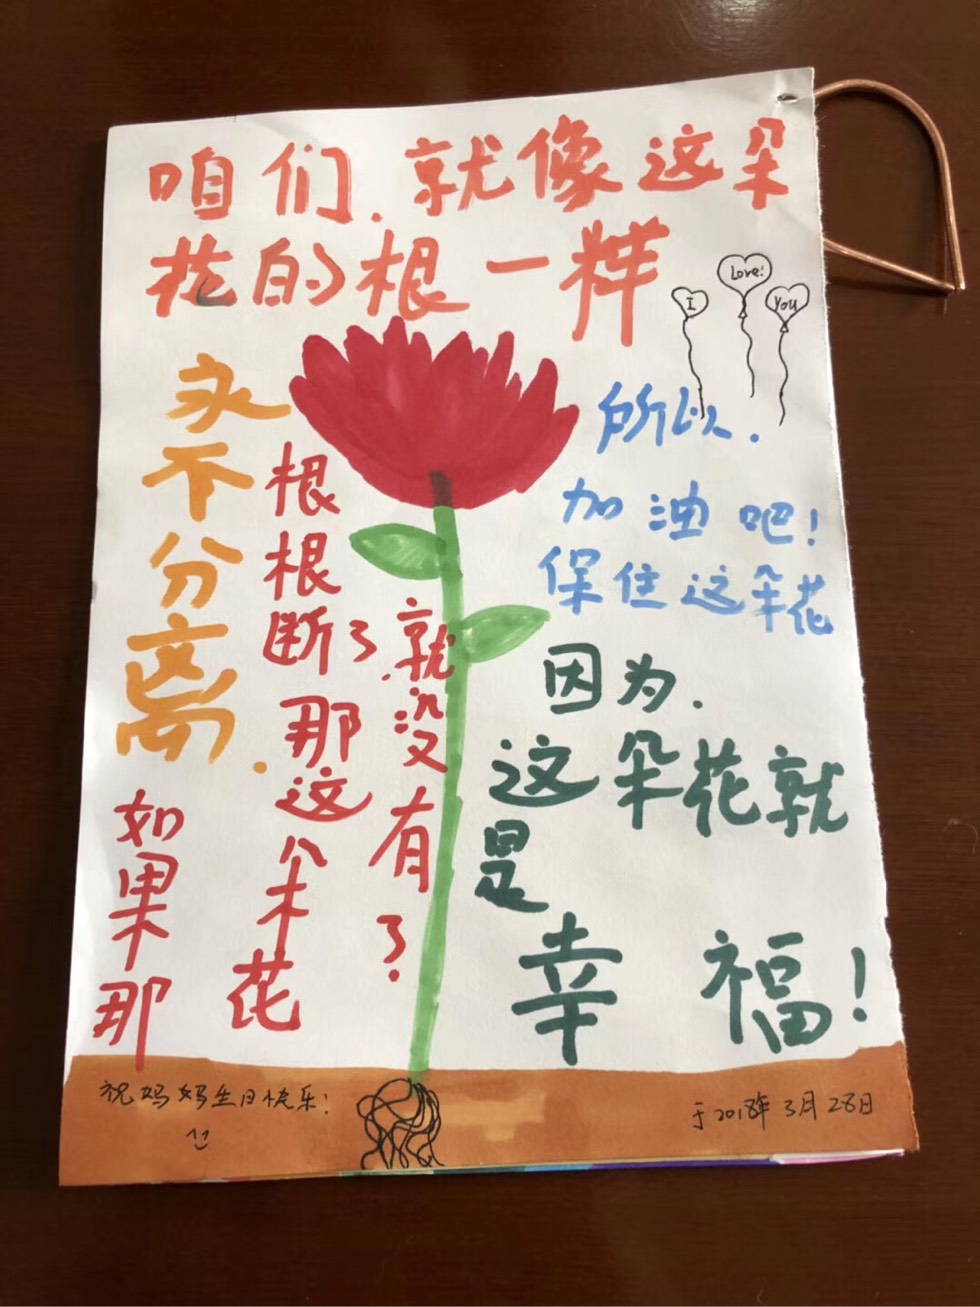 咱们.就像这朵
花的根一样
永不分离.
如果那
根根断了
那这个木花
.就没有了.
I Love! You
所以.
加油吧!
保住这朵花
因为.
这朵花就
是
幸福!
祝妈妈生日快乐!
于2018年3月28日